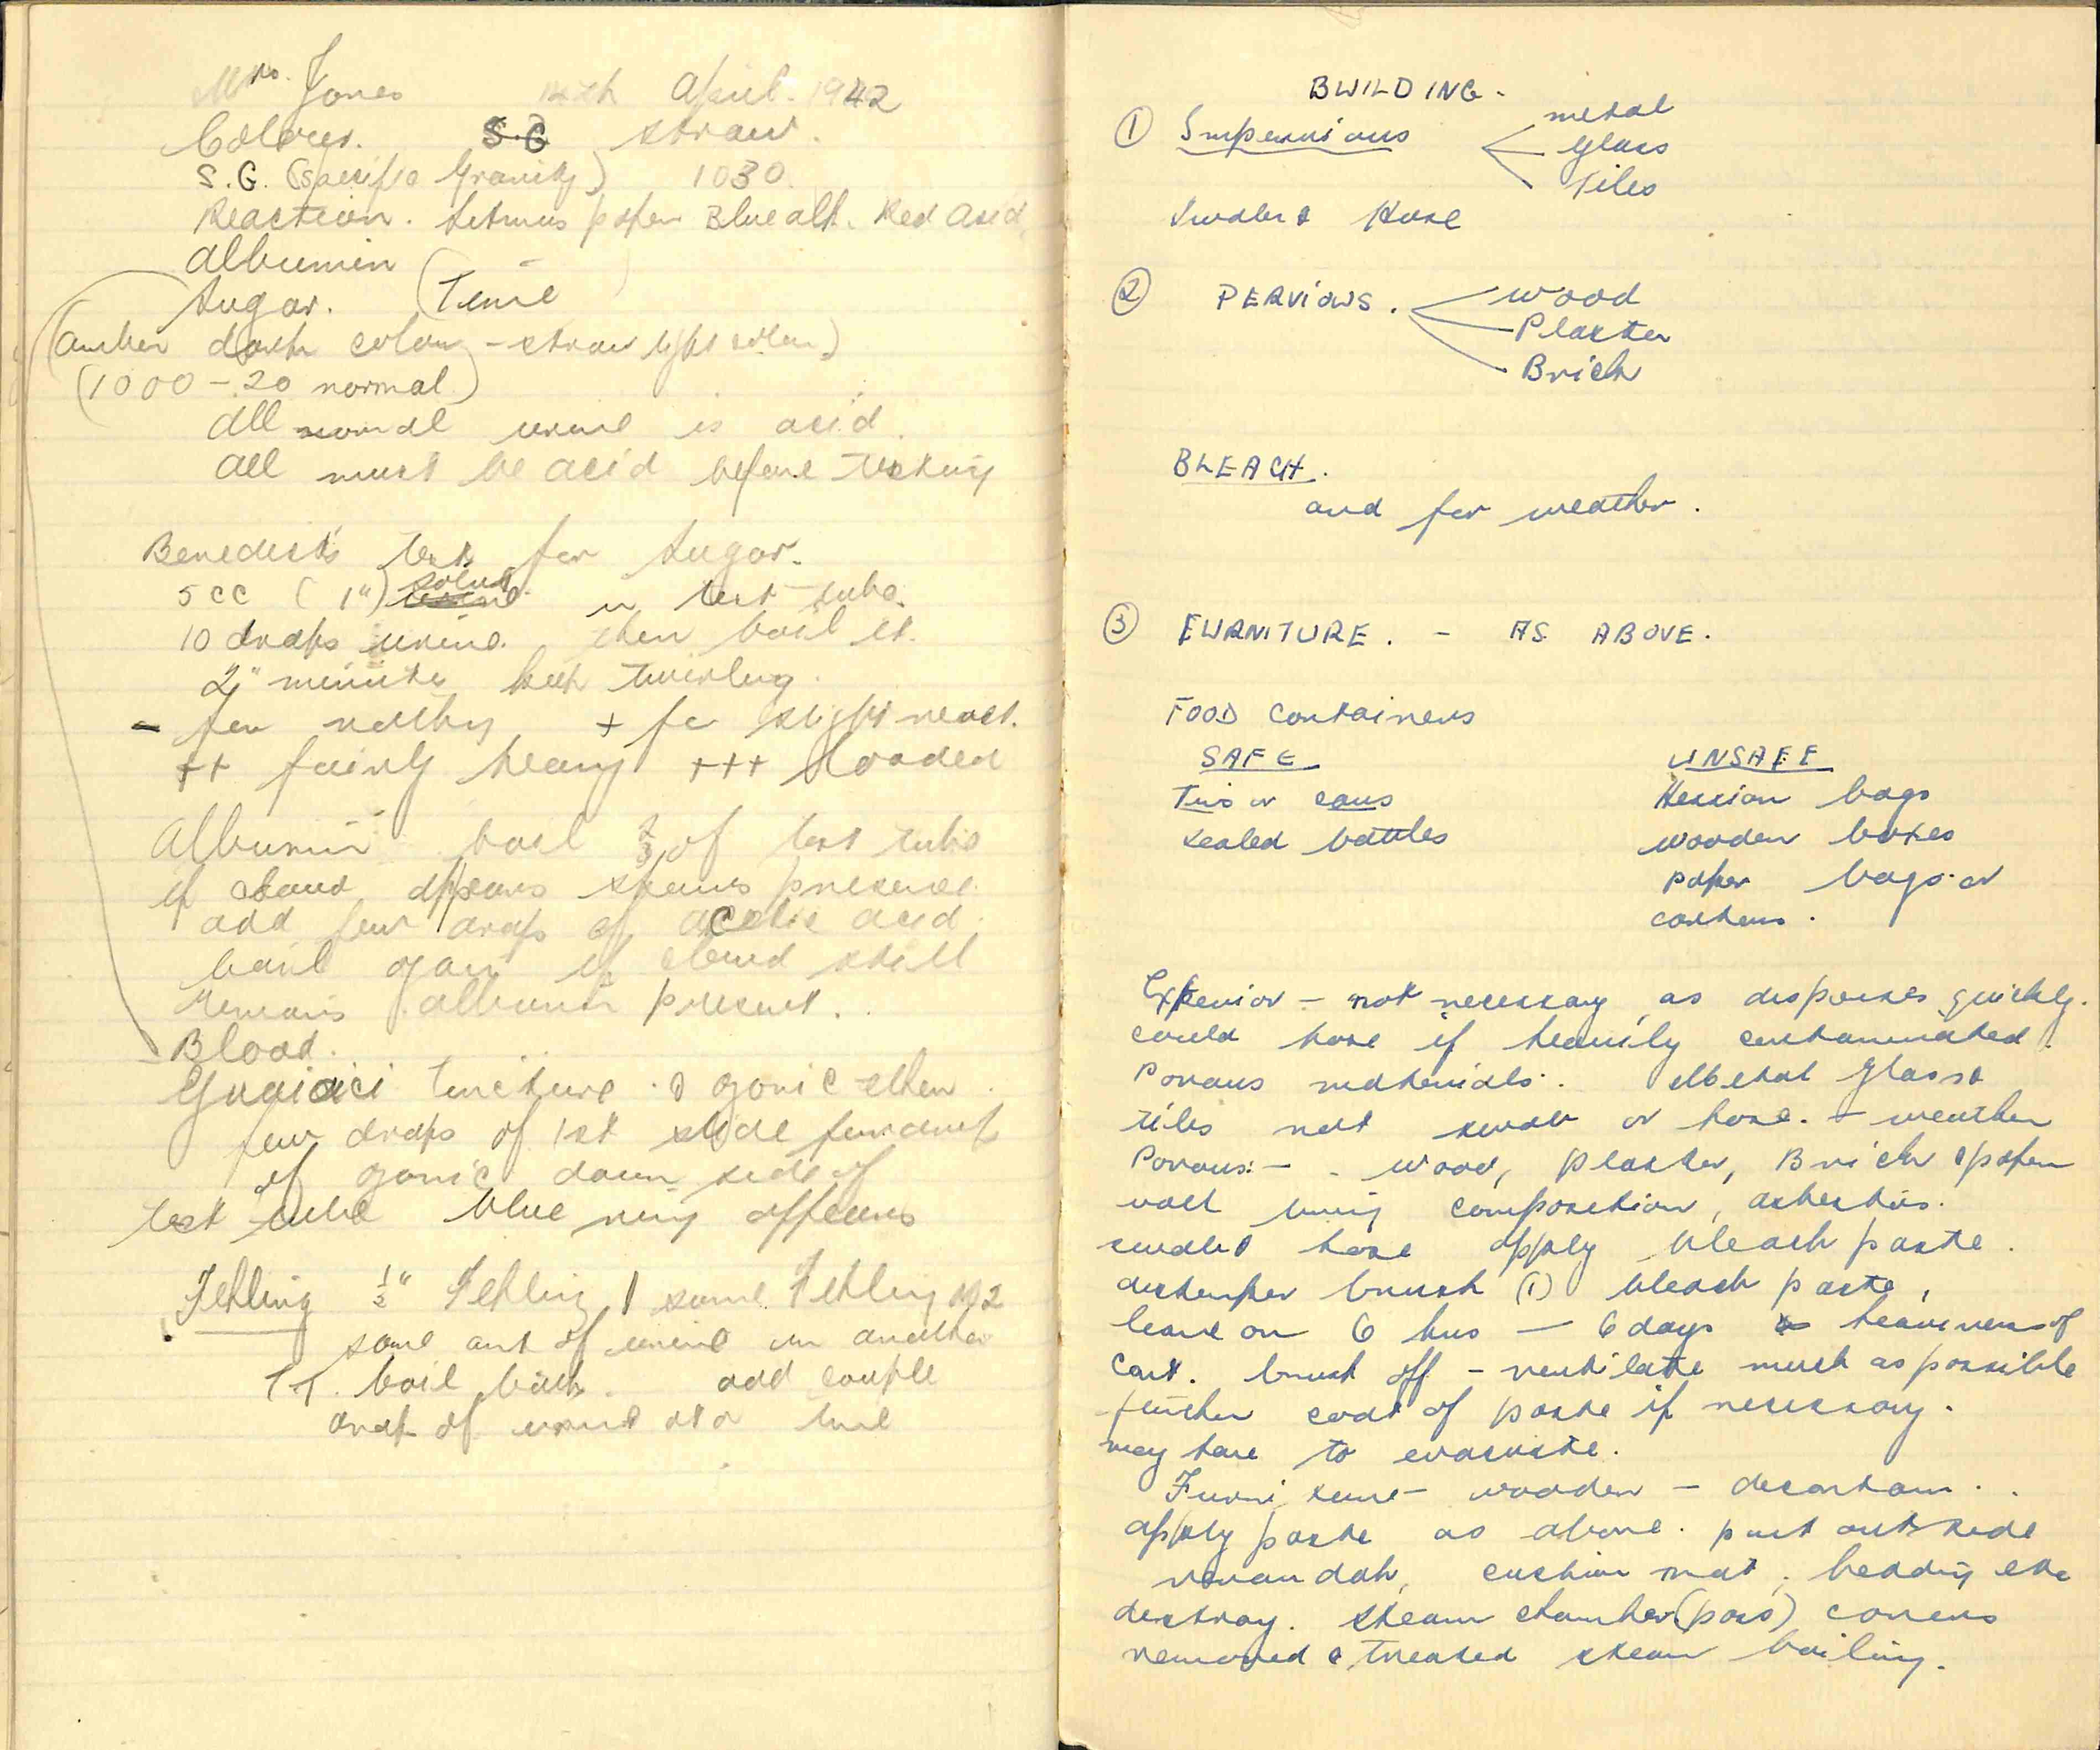 Mrs. Jones 14th April. 1942
Colour. S.G straw.
S.G. (Specific Gravity) 1030.
Reaction. Litmus paper Blue alk. Red Acid.
Albumin
Sugar. (Time
(Amber dark colour - straw light colour)
(1000 - 20 normal)
All normal urine is acid.
All must be acid before testing
Benedict's test for Sugar.
5 cc (1") urine solut. in test tube.
10 drops urine. then boil it.
2 minutes keep twirling.
- for nothing + for slight react.
++ fairly heavy +++ loaded
Albumin boil 2/3 of test tube
if cloud appears presence
add few drops of acetic acid.
boil again if cloud still
remains albumin present.
Blood.
Guaiaci tincture & ozonic ether.
few drops of 1st slide
of ozonic down side of
test tube blue ring appears
Fehling 1/2" Fehling 1 same Fehling No 2
same amt of urine in another
T.T. boil both. add couple
drop of urine at a time
BUILDING.
① Impervious metal
Glass
Tiles
Swab & Hose
② PERVIOUS. Wood
Plaster
Brick
BLEACH.
and for weather.
③ FURNITURE. - AS ABOVE.
FOOD Containers
SAFE UNSAFE
Tins or cans Hessian bags
sealed bottles wooden boxes
paper bags or
cartons.
Exterior - not necessary, as disperses quickly.
could hose if heavily contaminated.
Porous materials. Metal Glass &
tiles not swab or hose. - weather
Porous: - wood, plaster, Brick & paper
wall lining composition, asbestos.
swab & hose apply bleach paste.
distemper brush (1) bleach paste,
leave on 6 hrs - 6 days heaviness of
cont. brush off - ventilate much as possible
- further coat of paste if necessary.
may have to evacuate.
Furniture - wooden - decontam..
apply paste as above. put outside
verandah, cushion mat, bedding etc
destroy. steam chamber (poss) covers
removed & treated steam boiling.